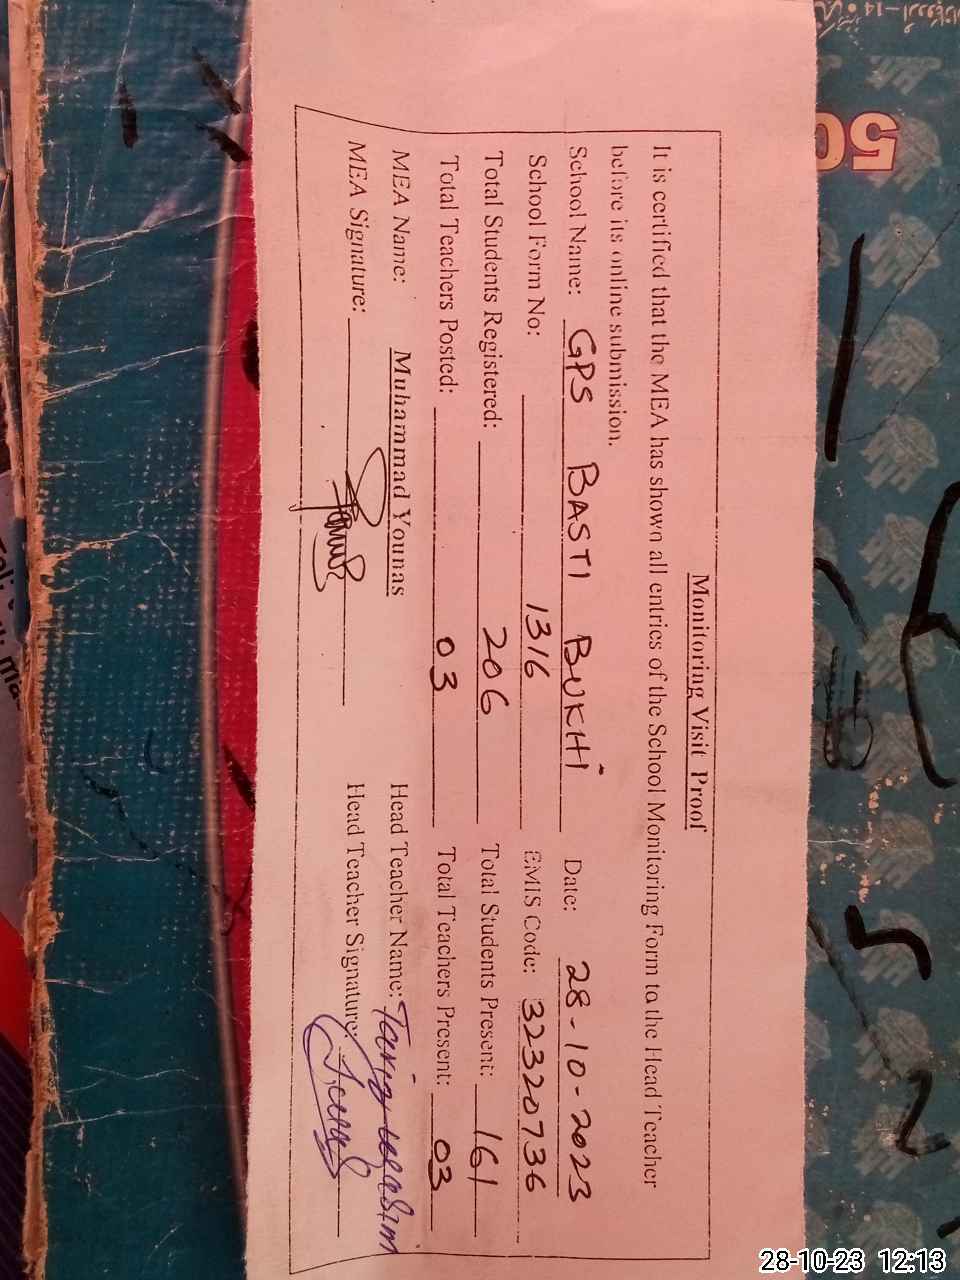 Monitoring Visit Proof
It is certified that the MEA has shown all entries of the School Monitoring Form to the Head Teacher
before its online submission.
School Name: GPS BASTI BUKHI Date: 28-10-2023
School Form No: 1316 EMIS Code: 32320736
Total Students Registered: 206 Total Students Present: 161
Total Teachers Posted: 03 Total Teachers Present: 03
MEA Name: Muhammad Younas Head Teacher Name: Tariq Waseem
MEA Signature: Head Teacher Signature:
50
28-10-23 12:13